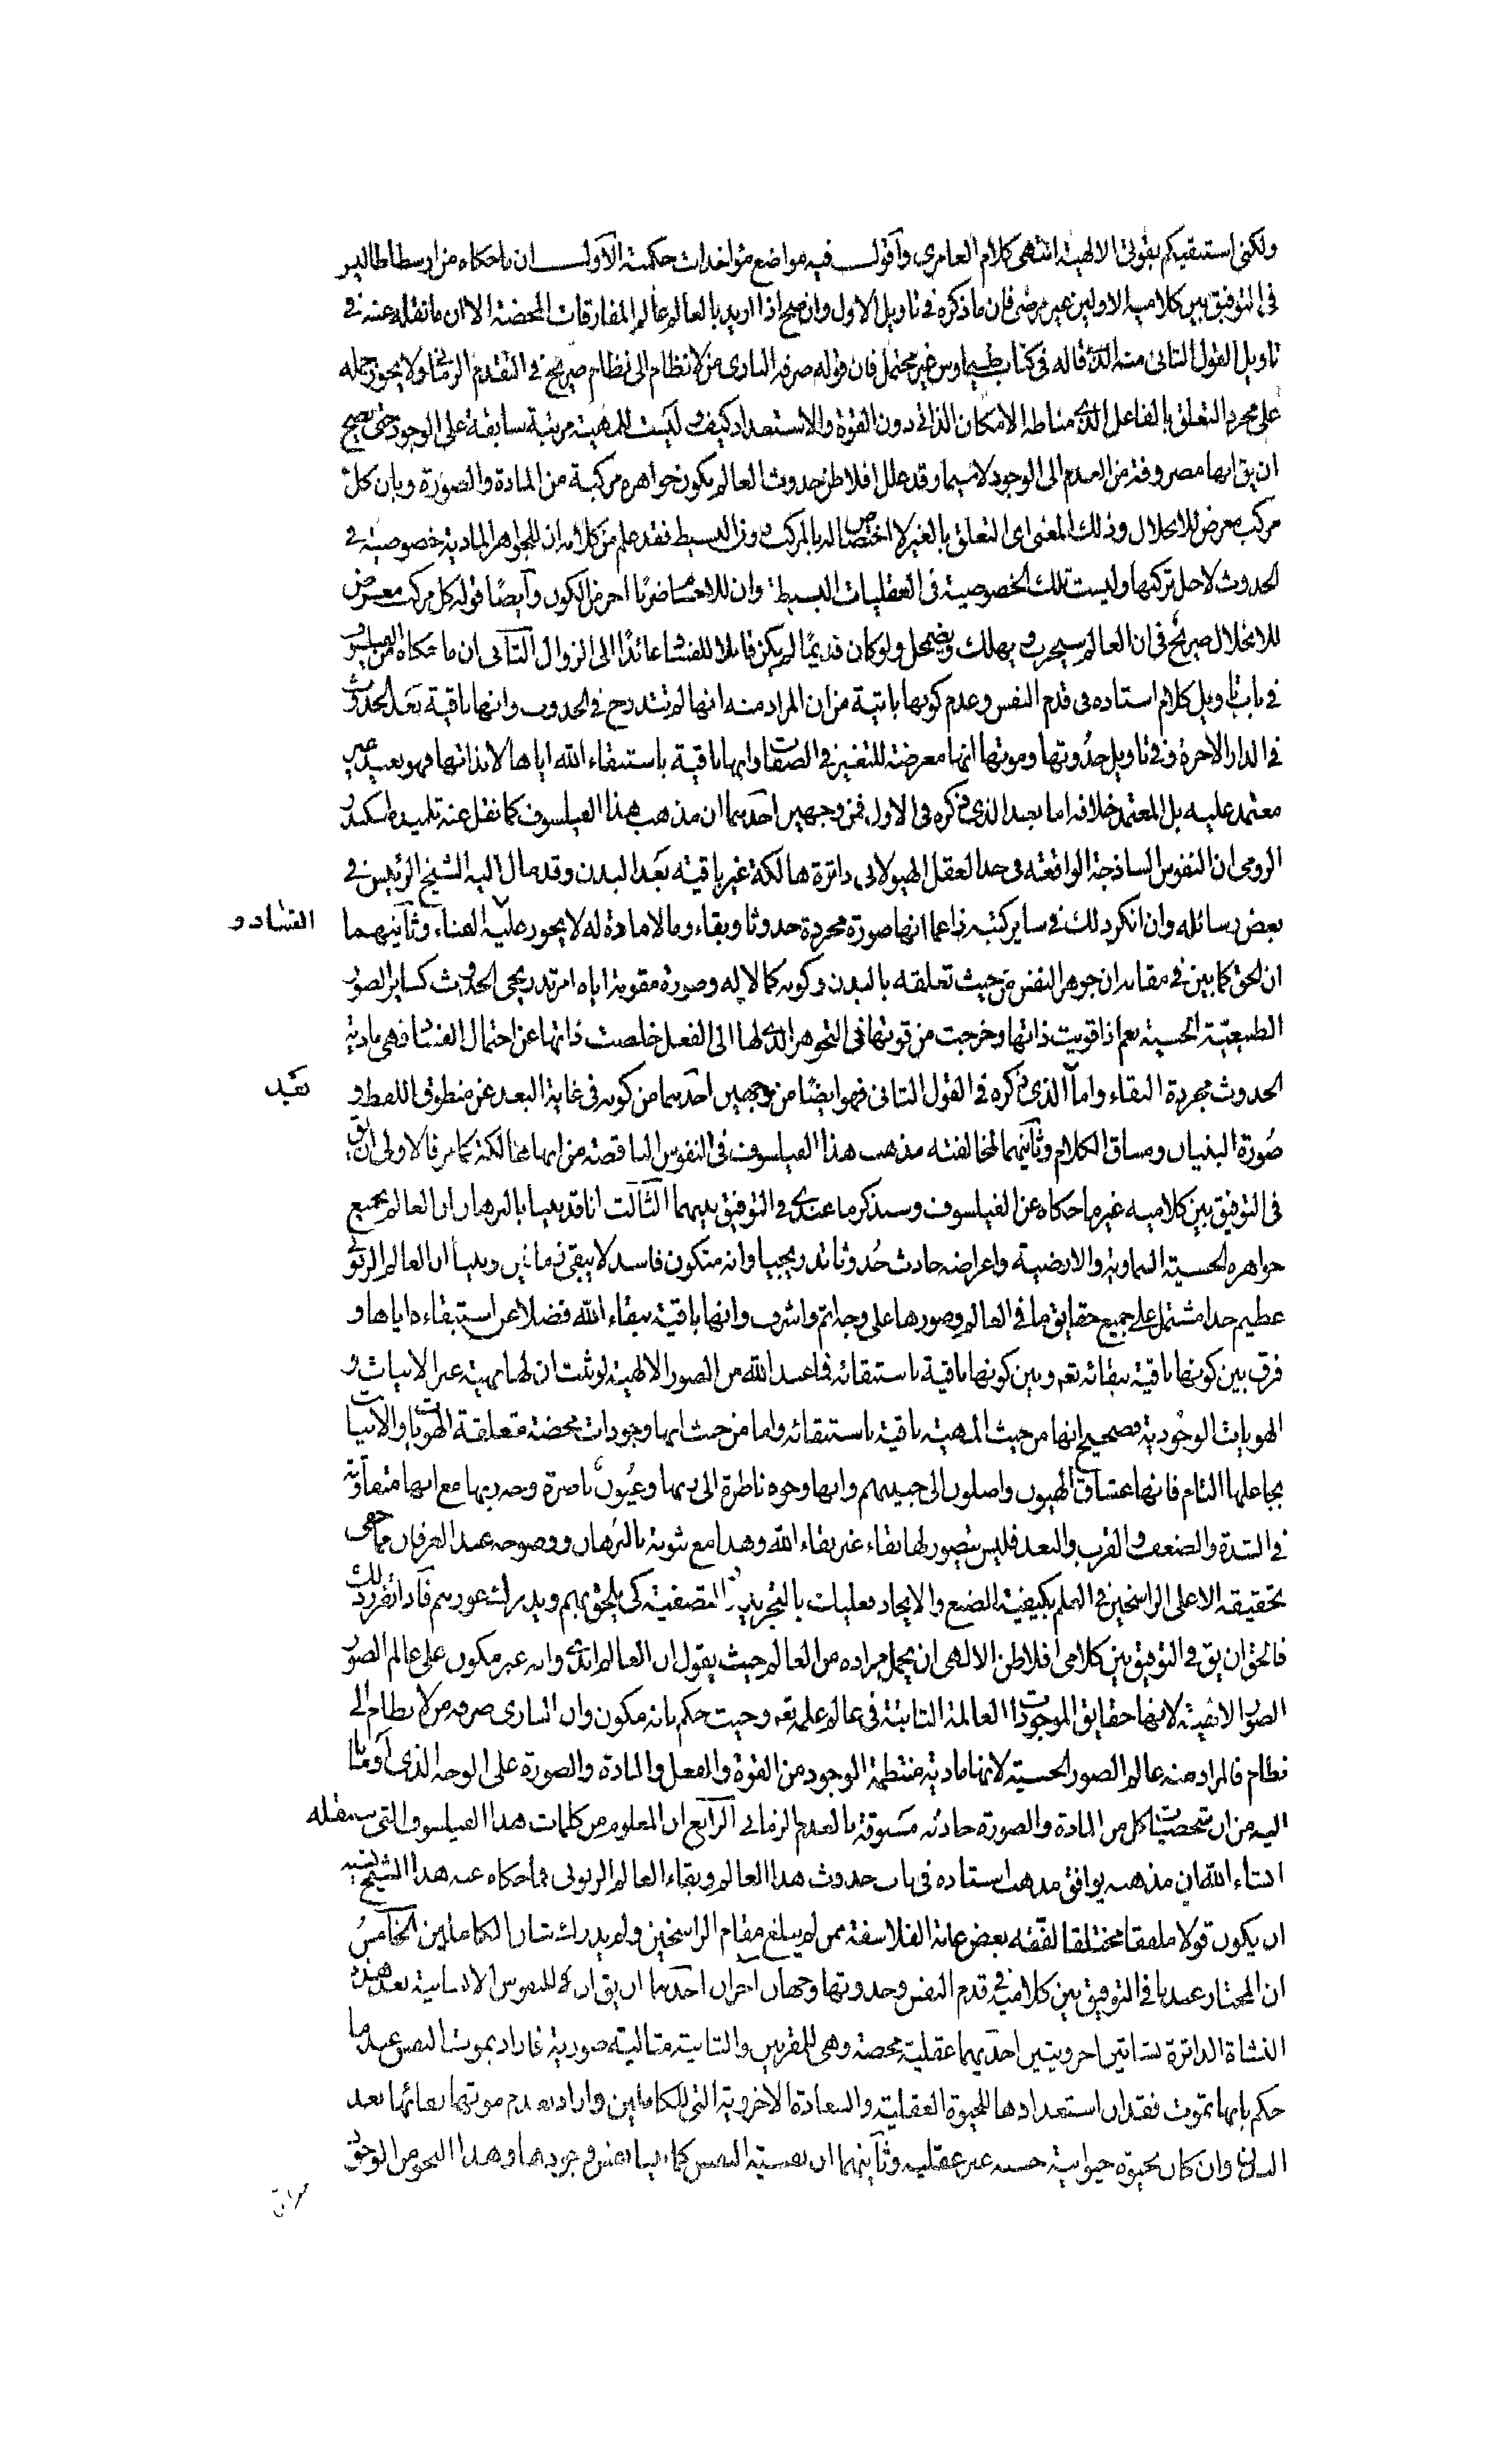 ولكنى استبقيكم بقوتى الالهية انتهى كلام العامرى وأقول فيه مواضع مؤاخذات حكمية الأول ان ما حكاه من ارسطاطاليس
فى التوفيق بين كلاميه الاولين غير مرضى فان ما ذكره فى تاويل الاول وان صح اذا اريد بالعالم عالم المفارقات المحضة الا ان ما نقله عنه فى
تاويل القول الثانى منه الذى قاله فى كتاب طيماوس غير محتمل فان قوله صرفه البارى من لا نظام الى نظام صريح فى التقدم الزمانى ولا يجوز حمله
على مجرد التعلق بالفاعل الذى مناطه الامكان الذاتى دون القوة والاستعداد كيف وليست للمهية مرتبة سابقة على الوجود حتى يصح
ان يق انها مصروفة من العدم الى الوجود لا سيما وقد علل افلاطن حدوث العالم بكون جواهره مركبة من المادة والصورة وبان كل
مركب معرض للانحلال وذلك المعنى اى التعلق بالغير لا اختصاص له بالمركب دون البسيط فقد علم من كلامه ان للجواهر المادية خصوصية فى
الحدوث لاجل تركبها وليست تلك الخصوصية فى العقليات البسيطة وان للاجسام ضربا آخر من الكون وأيضا قوله كل مركب معرض
للانحلال صريح فى ان العالم سيخرب ويهلك ويضمحل ولو كان قديما لم يكن قابلا للفساد عائدا الى الزوال الثانى ان ما حكاه من الفيلسوف
فى باب تاويل كلام استاده فى قدم النفس وعدم كونها بايتة من ان المراد منه انها لم تتدرج فى الحدوث وانها باقية بعد الحدوث
فى الدار الاخرة وفى تاويل حدوثها وموتها انها معرضة للتغير فى الصفات وانها باقية باستبقاء الله اياها لا بذاتها فهو بعيد غير
معتمد عليه بل المعتمد خلافه اما بعد الذى ذكره فى الاول فمن وجهين احدهما ان مذهب هذا الفيلسوف كما نقل عنه تلميذه اسكندر
الرومى ان النفوس الساذجة الواقعة فى حد العقل الهيولانى داثرة هالكة غير باقية بعد البدن وقد مال اليه الشيخ الرئيس فى
بعض رسائله وان انكر ذلك فى ساير كتبه زاعما انها صورة مجردة حدوثا وبقاء وما لا مادة له لا يجوز عليه الفناء وثانيهما
الفساد و
ان الحق كما بين فى مقامه ان جوهر النفس من حيث تعلقه بالبدن وكونه كمالا له وصورة مقومة اياه امر تدريجى الحدوث كساير الصور
الطبيعية الحسية نعم اذا قويت ذاتها وخرجت من قوتها فى التجوهر الذى لها الى الفعل خلصت ذاتها عن احتمال الفساد فهى مادية
الحدوث مجردة البقاء واما الذى ذكره فى القول الثانى فهو ايضا من وجهين احدهما من كونه فى غاية البعد عن منطوق اللفظ و
بعيد
صورة البنيان ومساق الكلام وثانيهما لمخالفته مذهب هذا الفيلسوف فى النفوس الناقصة من انها هالكة كما مر فالاولى ان يق
فى التوفيق بين كلاميه غير ما حكاه عن الفيلسوف وسنذكر ما عندى فى التوفيق بينهما الثالث انا قد بينا بالبرهان ان العالم بجميع
جواهره الحسية السماوية والارضية واعراضه حادث حدوثا تدريجيا وانه متكون فاسد لا يبقى زمانين وبينا ان العالم الربوبى
عظيم جدا مشتمل على جميع حقايق ما فى العالم وصورها على وجه اتم واشرف وانها باقية ببقاء الله فضلا عن استبقاءه اياها و
فرق بين كونها باقية ببقائه تعه وبين كونها باقية باستبقائه فما عند الله من الصور الالهية لو ثبت ان لها مهية غير الانيات و
الهويات الوجودية فصحيح انها من حيث المهية باقية باستبقائه واما من حيث انها وجودات محضة متعلقة الهويات والانيات
بجاعلها التام فانها عشاق الهيون واصلون الى حبيبهم وانها وجوه ناظرة الى ربها وعيون ناضرة وجه ربها مع انها متفاوتة
فى الشدة والضعف والقرب والبعد فليس يتصور لها بقاء غير بقاء الله وهذا مع ثبوته بالبرهان ووضوحه عند العرفان مما خفى
تحقيقه الا على الراسخين فى العلم بكيفية الصنع والايجاد فعليك بالتجريد والتصفية كى يلحق بهم ويدرك غورهم فاذا تقرر ذلك
فالحق ان يق فى التوفيق بين كلامى افلاطن الالهى ان يحمل مراده من العالم حيث يقول ان العالم ابدى وانه غير مكون على عالم الصور
الالهية لانها حقايق الموجودات العالمة الثابتة فى عالم علمه تعه وحيث حكم بانه مكون وان البارى صرفه من لا نظام الى
نظام فالمراد منه عالم الصور الحسية لانها مادية منتظمة الوجود من القوة والفعل والمادة والصورة على الوجه الذى اومأنا
اليه من ان شخصيات كل من المادة والصورة حادثه مسبوقة بالعدم الزمانى الرابع ان المعلوم من كلمات هذا الفيلسوف التى سننقله
انشاء الله ان مذهبه يوافق مذهب استاده فى باب حدوث هذا العالم وبقاء العالم الربوبى فما حكاه عنه هذا الشيخ يشبه
ان يكون قولا ملفقا مختلقا لفقه بعض عامة الفلاسفة ممن لم يبلغ مقام الراسخين ولم يدرك شان الكاملين الخامس
ان المختار عندنا فى التوفيق بين كلاميه فى قدم النفس وحدوثها وجهان آخران احدهما ان يق ان للنفوس الانسانية بعد هذه
النشاة الداثرة نشاتين اخرويتين احديهما عقلية محضة وهى للمقربين والثانية مثالية صورية فاراد بموت النفس عند ما
حكم بانها تموت فقدان استعدادها للحيوة العقلية والسعادة الاخروية التى للكاملين واراد بعدم موتها بقائها بعد
البدن وان كان بحيوة حيوانية حسيه غير عقليه وثانيهما ان نفسية النفس كما بينا نحو وجودها وهذا النحو من الوجود